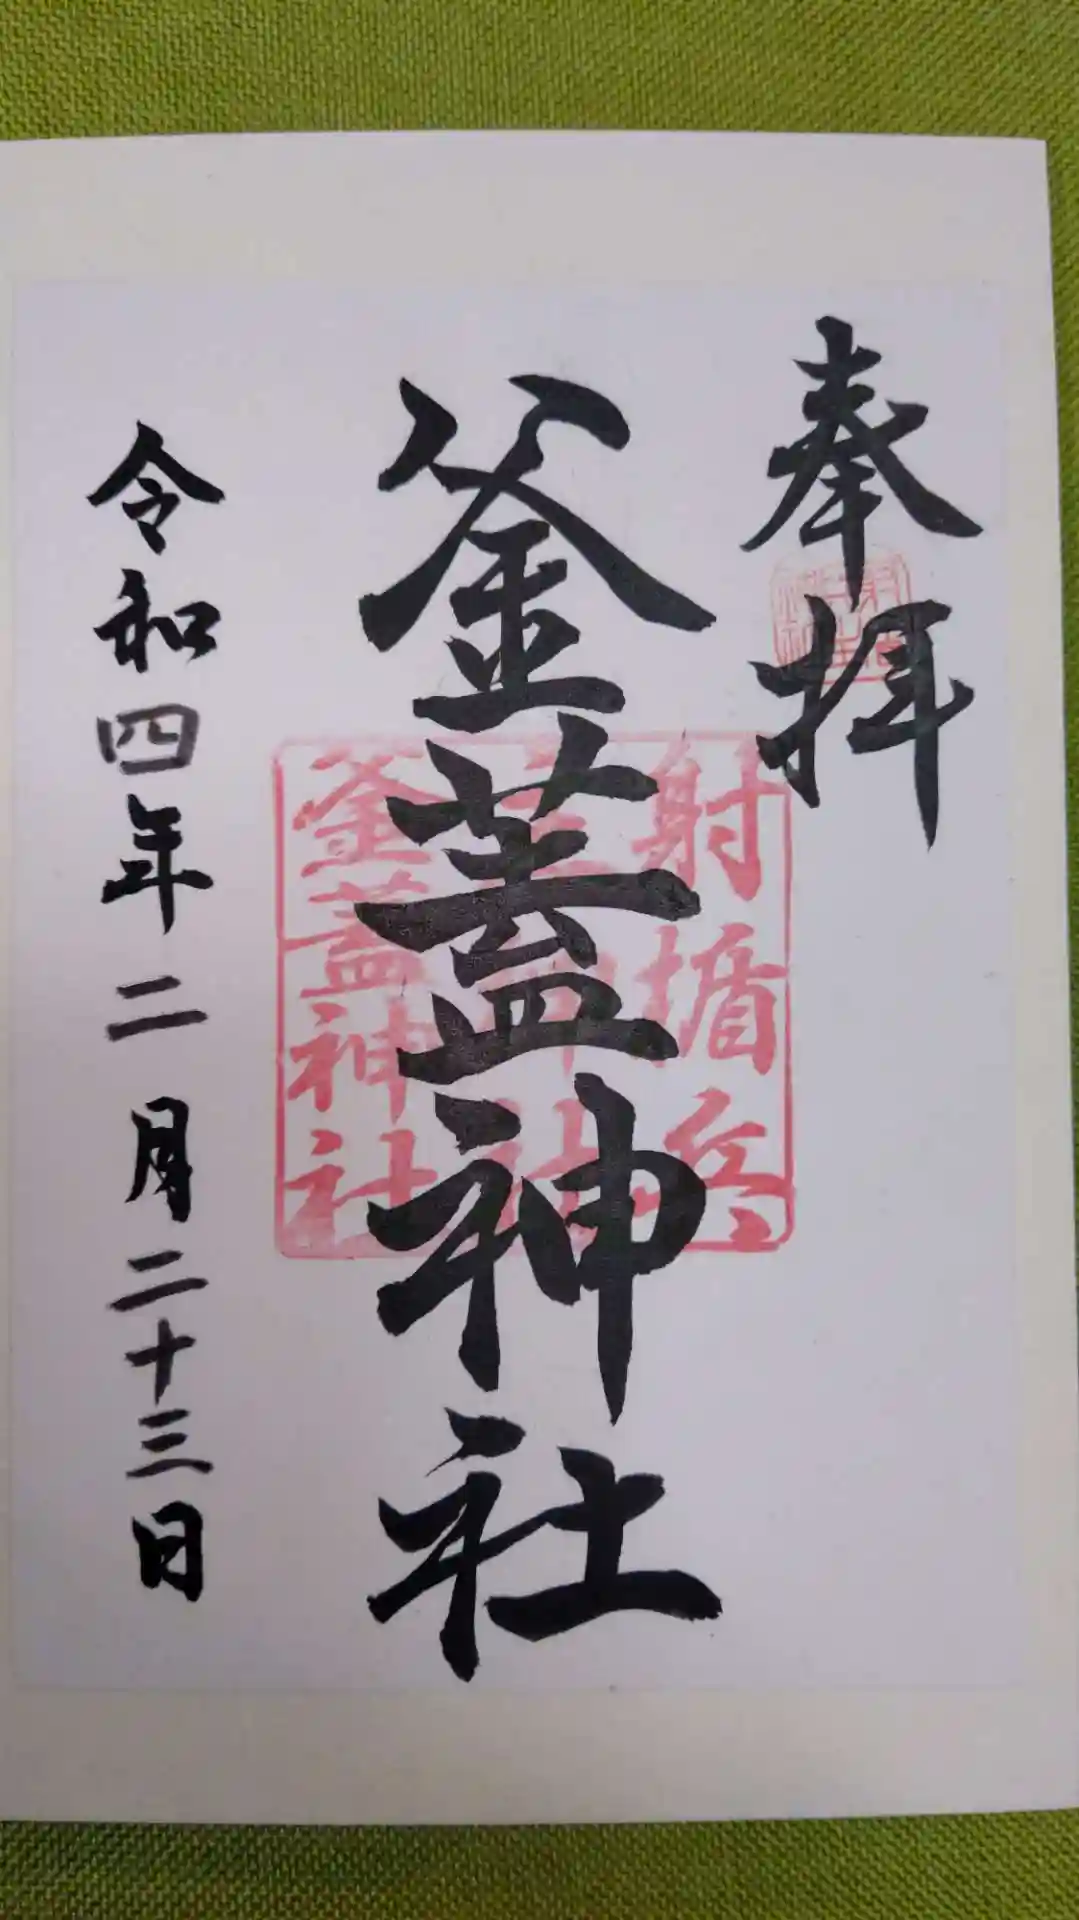 奉拝
釜蓋神社
令和四年二月二十三日
射楯兵
釜蓋神社